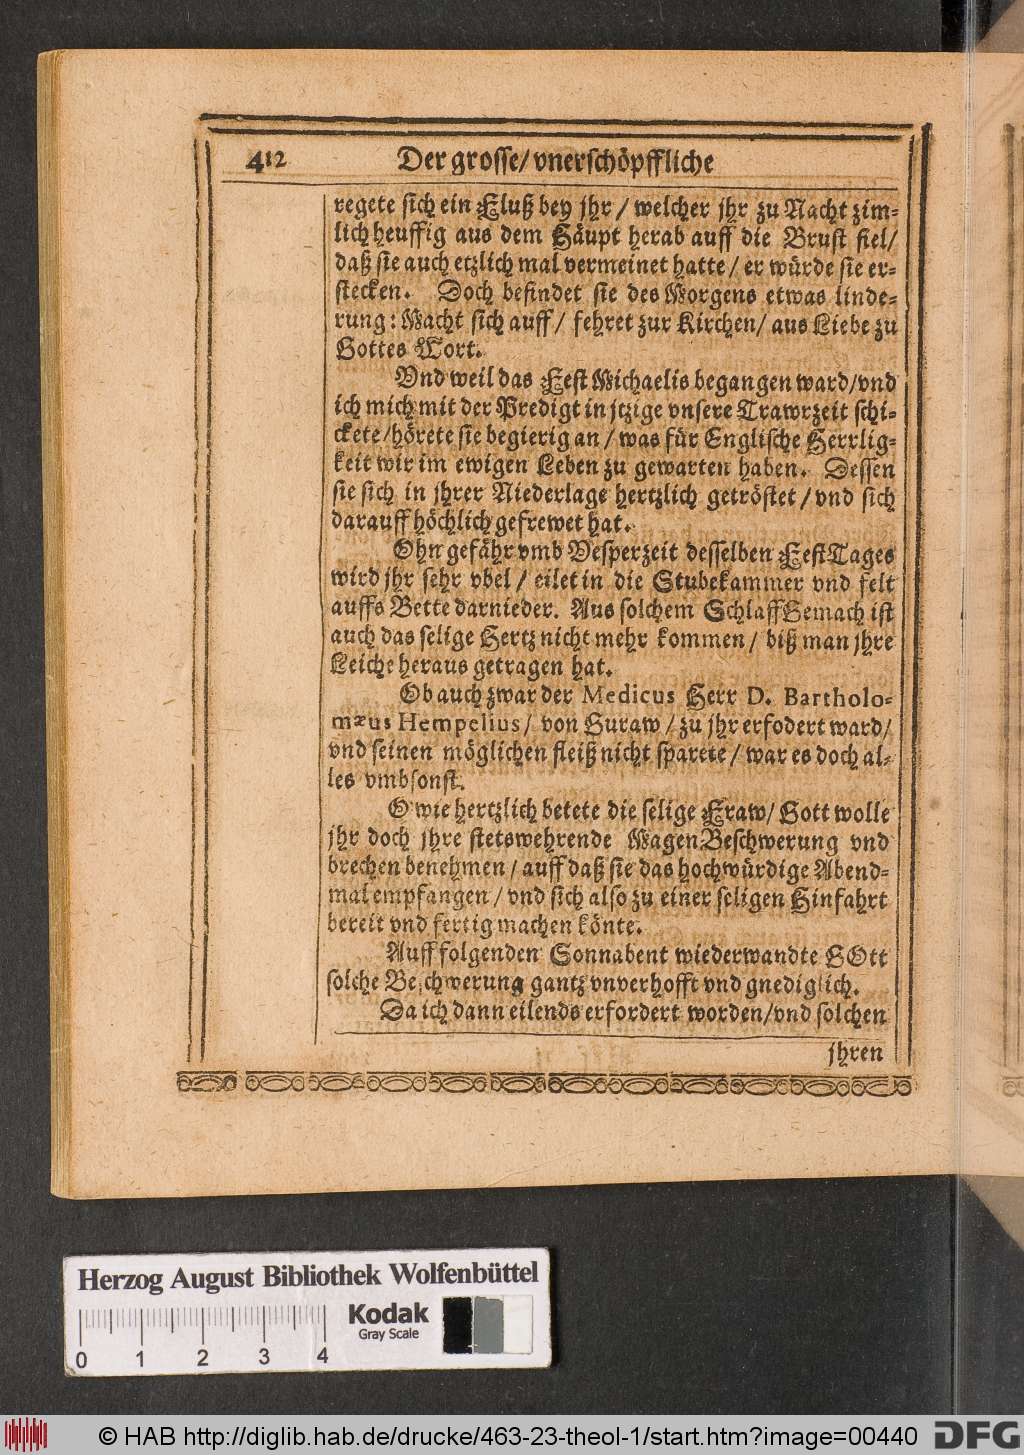 412 Der grosse/ vnerschöpffliche
regete sich ein Fluß bey jhr / welcher jhr zu Nacht zim-
lich heuffig aus dem Häupt herab auff die Brust fiel/
daß sie auch etzlich mal vermeinet hatte / er würde sie er-
stecken. Doch befindet sie des Morgens etwas linde-
rung: Macht sich auff / fehret zur Kirchen/ aus Liebe zu
Gottes Wort.
Vnd weil das Fest Michaelis begangen ward/vnd
ich mich mit der Predigt in jtzige vnsere Trawrzeit schi-
ckete/hörete sie begierig an / was für Englische Herrlig-
keit wir im ewigen Leben zu gewarten haben. Dessen
sie sich in jhrer Niederlage hertzlich getröstet / vnd sich
darauff höchlich gefrewet hat.
Ohn gefähr vmb Vesperzeit desselben FestTages
wird jhr sehr vbel / eilet in die Stubekammer vnd felt
auffs Bette darnieder. Aus solchem SchlaffGemach ist
auch das selige Hertz nicht mehr kommen / biß man jhre
Leiche heraus getragen hat.
Ob auch zwar der Medicus Herr D. Bartholo-
mæus Hempelius/ von Guraw / zu jhr erfodert ward/
vnd seinen möglichen fleiß nicht sparete / war es doch al-
les vmbsonst.
O wie hertzlich betete die selige Fraw/ Gott wolle
jhr doch jhre stetswehrende MagenBeschwerung vnd
brechen benehmen / auff daß sie das hochwürdige Abend-
mal empfangen / vnd sich also zu einer seligen Hinfahrt
bereit vnd fertig machen könte.
Auff folgenden Sonnabent wiederwandte GOtt
solche Beschwerung gantz vnverhofft vnd gnediglich.
Da ich dann eilends erfordert worden/vnd solchen
jhren
Herzog August Bibliothek Wolfenbüttel
Kodak
Gray Scale
0 1 2 3 4
© HAB http://diglib.hab.de/drucke/463-23-theol-1/start.htm?image=00440
DFG